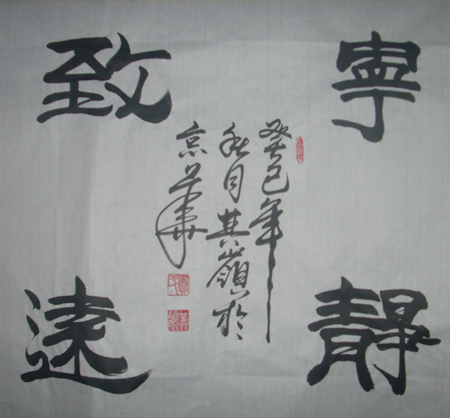 寧靜
致遠
癸巳年
秋月其嶺於
京華